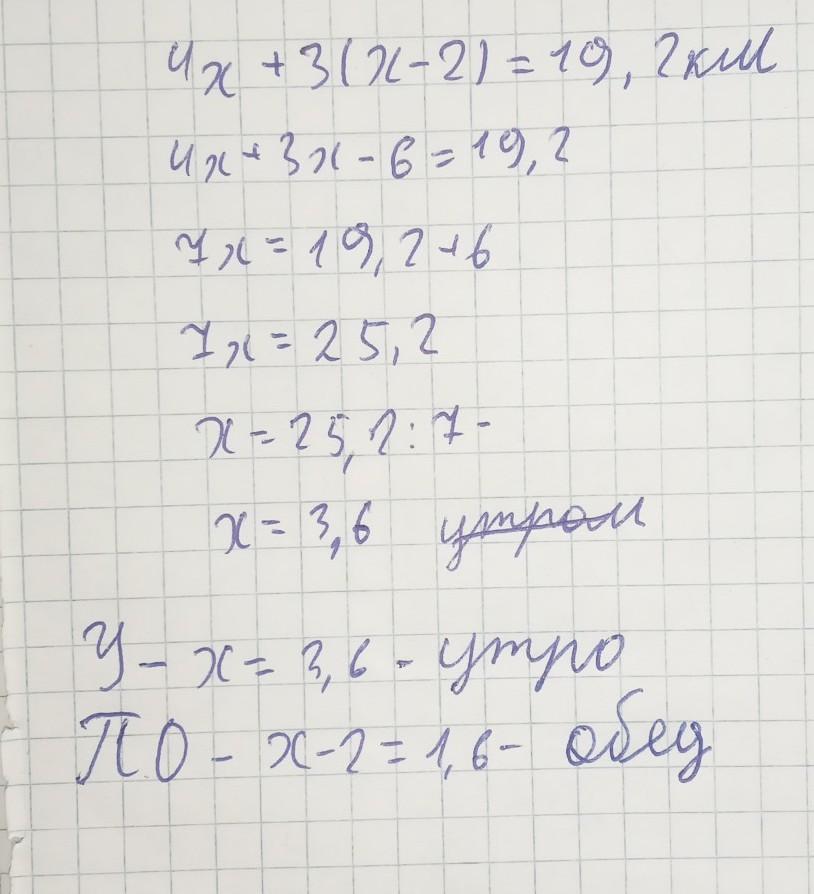 4x + 3(x-2) = 19,2км
4x + 3x - 6 = 19,2
7x = 19,2+6
7x = 25,2
x = 25,2 : 7 -
x = 3,6 утром
У - x = 3,6 - утро
ПО - x-2 = 1,6 - обед